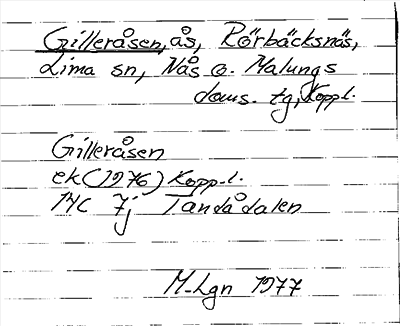 Gilleråsen, ås, Rörbäcksnäs,
Lima sn, Nås o. Malungs
doms. tg, Kopp.l.
Gilleråsen
ek (1976) Kopp.l.
14C 7j Tandådalen
M-Lgn 1977